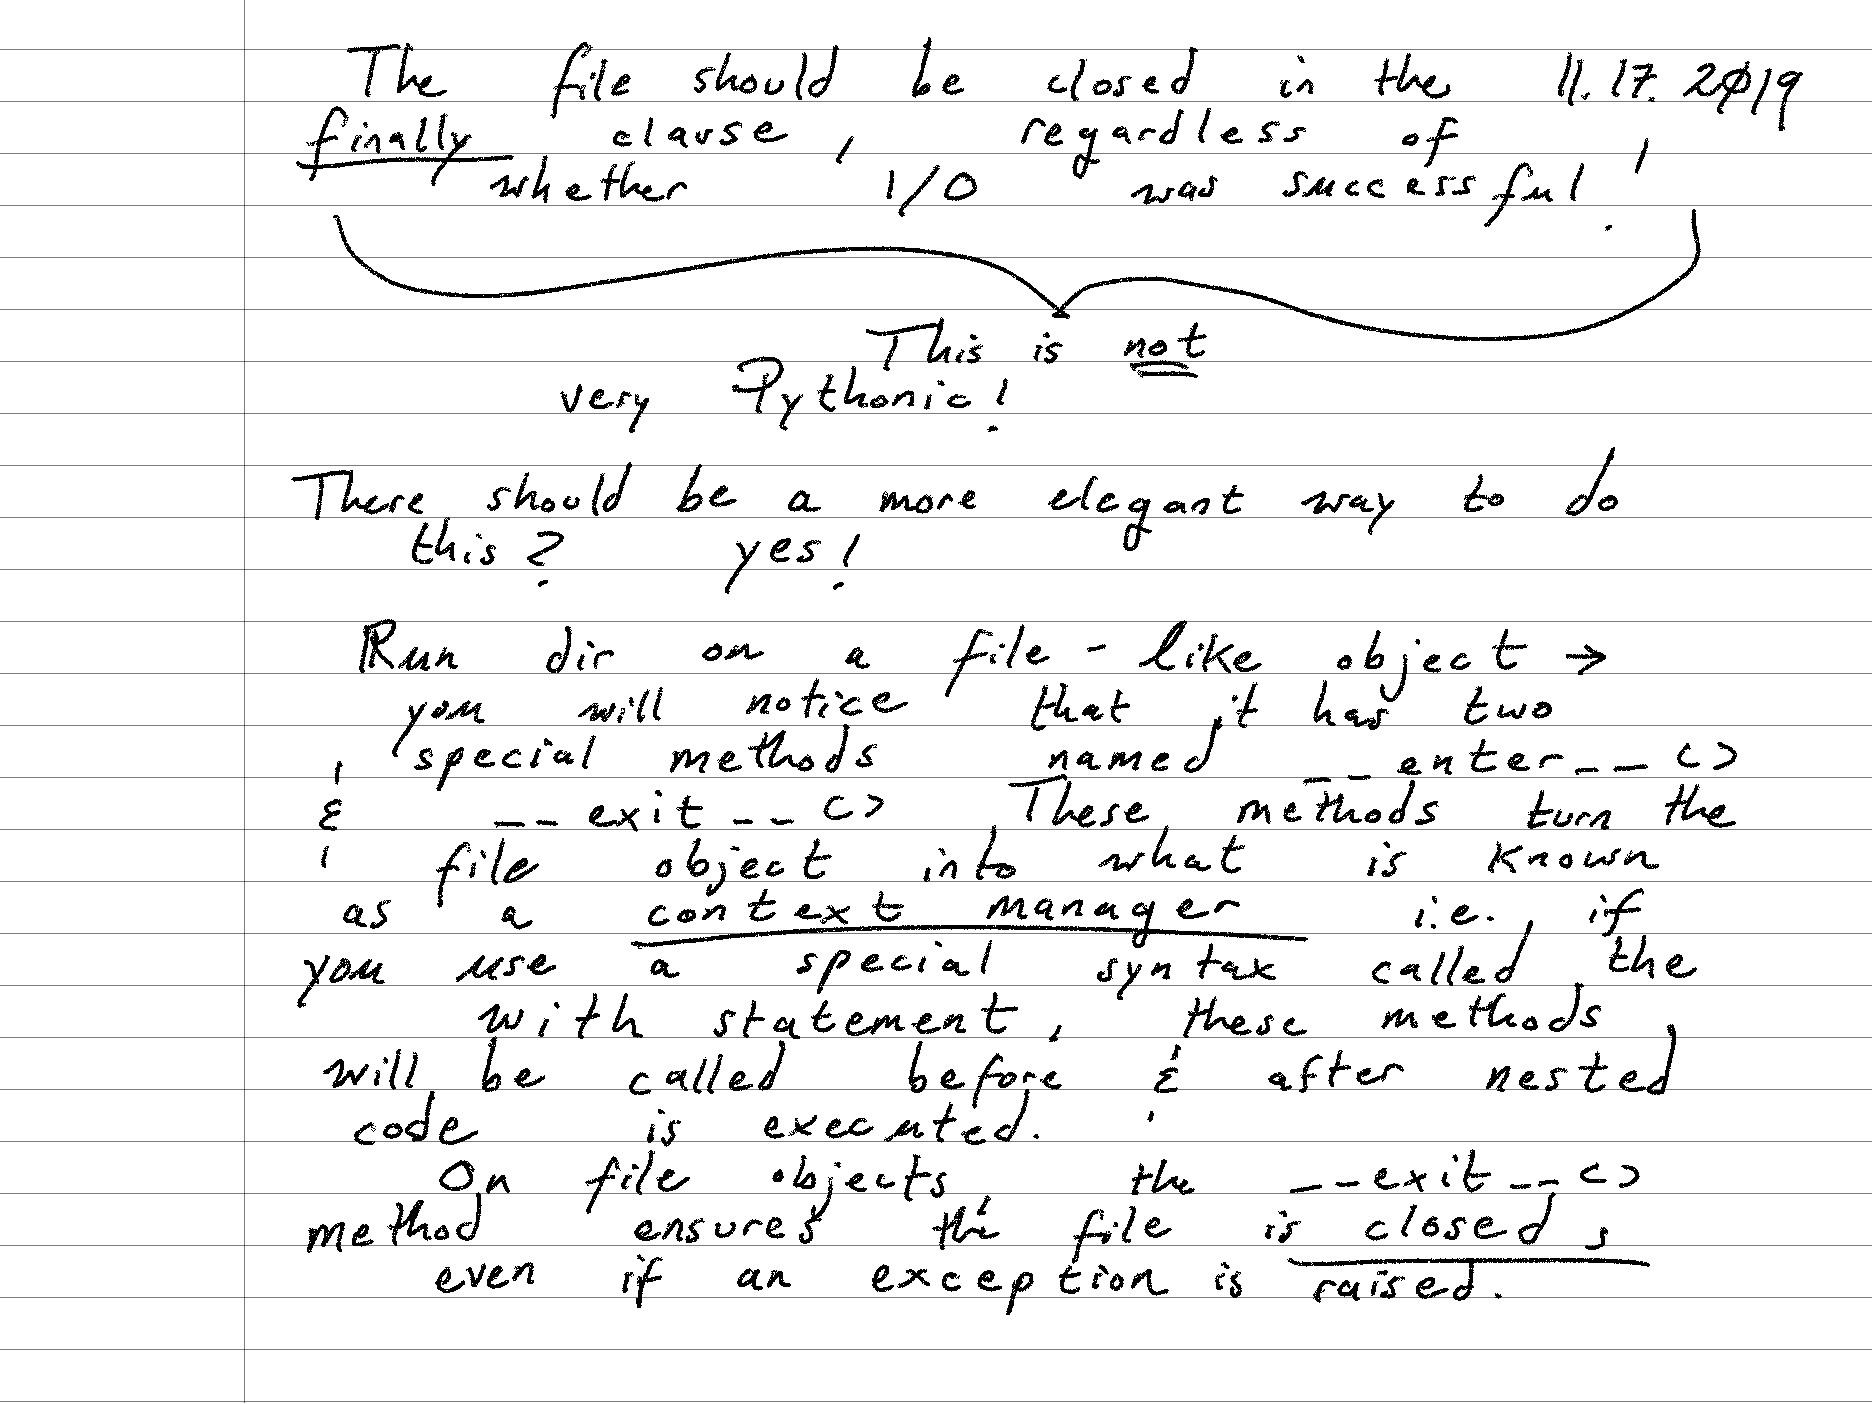 The file should be closed in the 11.17.2019
finally clause, regardless of
whether I/O was successful!
This is not
very Pythonic!
There should be a more elegant way to do
this? yes!
Run dir on a file-like object →
you will notice that it has two
special methods named __enter__()
& __exit__() These methods turn the
file object into what is known
as a context manager i.e., if
you use a special syntax called the
with statement, these methods
will be called before & after nested
code is executed.
On file objects, the __exit__()
method ensures the file is closed,
even if an exception is raised.